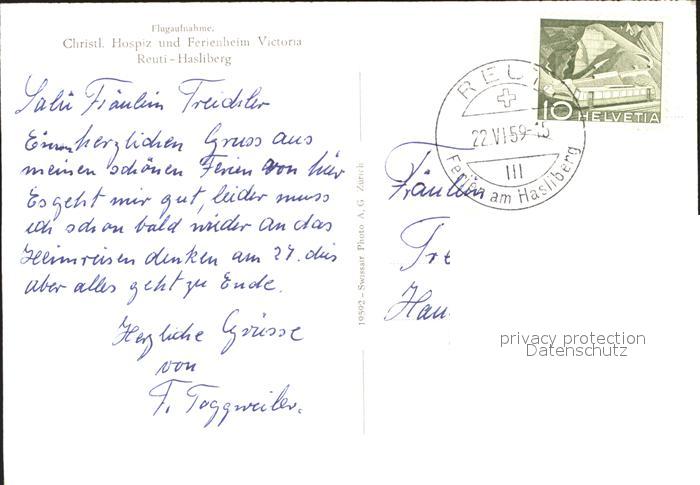 Flugaufnahme.
Christl. Hospiz und Ferienheim Victoria
Reuti-Hasliberg
Salü Fräulein Treichler
Einen herzlichen Gruss aus
meinen schönen Ferien von hier
Es geht mir gut, leider muss
ich schon bald wieder an das
Heimreisen denken am 27. dies
aber alles geht zu Ende.
Herzliche Grüsse
von
F. Toggweiler.
19592 - Swissair Photo A.G Zürich
REUTI
22.VI 59-15
III
Ferien am Hasliberg
10 HELVETIA
Fräulein
Tre
Hau
privacy protection
Datenschutz